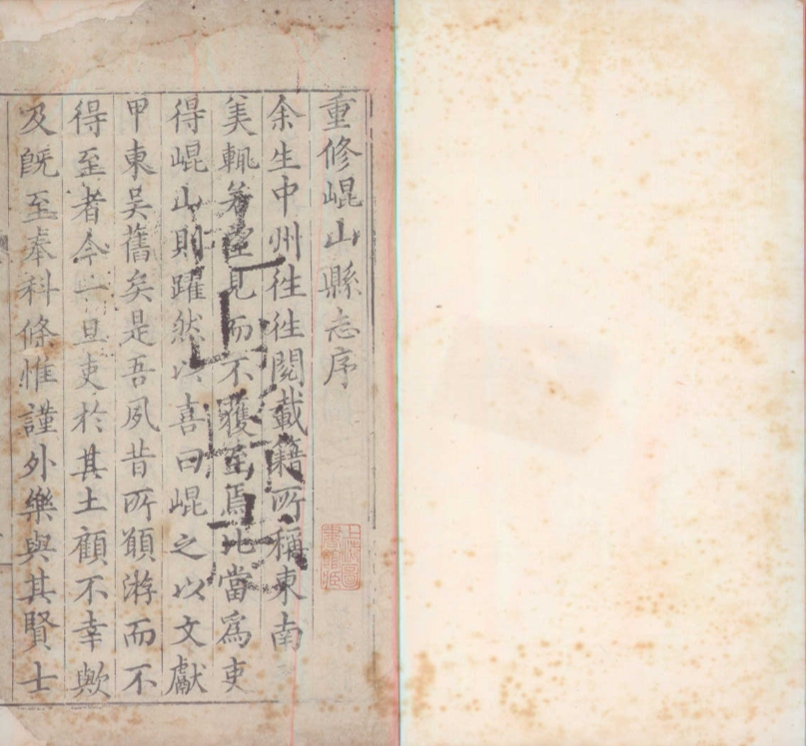 重修崐山縣志序
余生中州徃徃閱載籍所稱東南
美輒若望見而不獲至焉比當爲吏
得崐山則躍然以喜曰崐之以文獻
甲東吴舊矣是吾夙昔所願游而不
得至者今一旦吏於其土顧不幸歟
及旣至奉科條惟謹外樂與其賢士